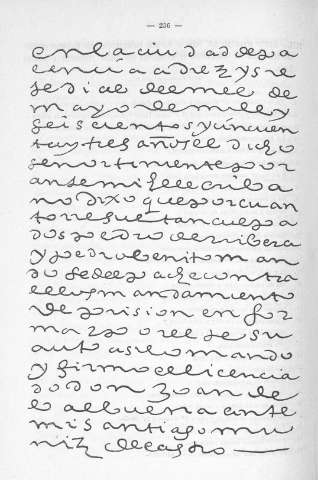 — 256 —
en la ciudad de pa
lencia a diez y s
se dias del mes de
mayo de mill e y
seiscientos y cincuen
ta y tres años el dicho
señor teniente por
ante mi el escriba
no dixo que por cuan
to resue tan culpa
dos pedro de ribera
y pedro benito man
do se despache contra
ellos mandamiento
de prision en for
ma y por el se su
auto asi lo mando
y firmo el licencia
do don Joan de
lo albuena ante
mi santiago mu
niz de castro